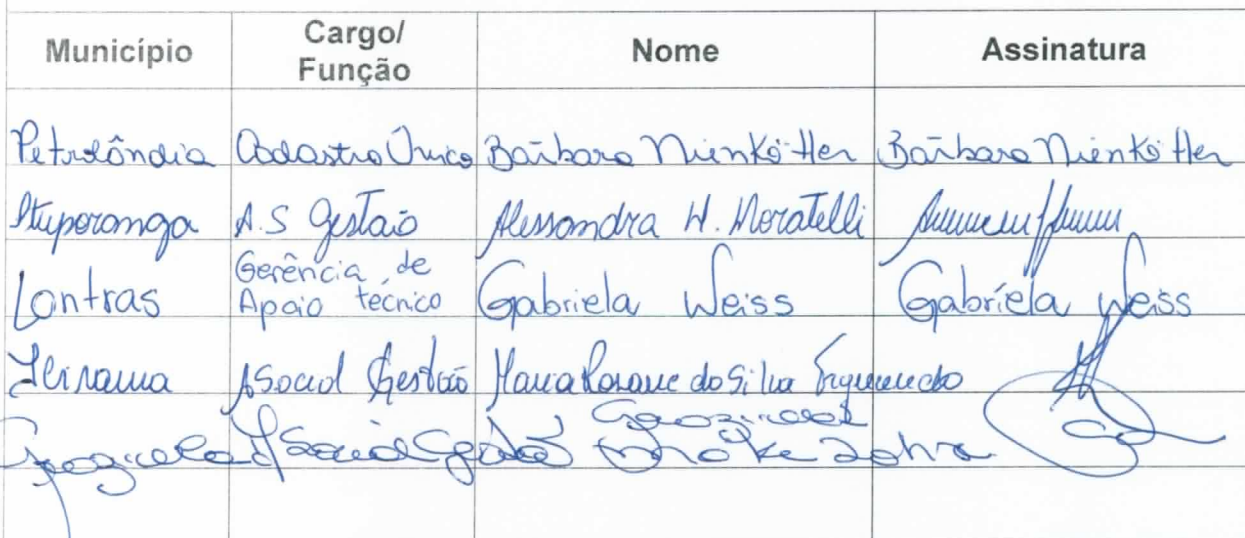 Município Cargo/ Função Nome Assinatura
Petrolândia Cadastro Único Bárbara Nienkötter Bárbara Nienkötter
Ituporanga A.S Gestão Alessandra H. Moratelli
Lontras Gerência de Apoio técnico Gabriela Weiss Gabriela Weiss
Ibirama ASocial Gestão Maria Rosane da Silva Figueredo